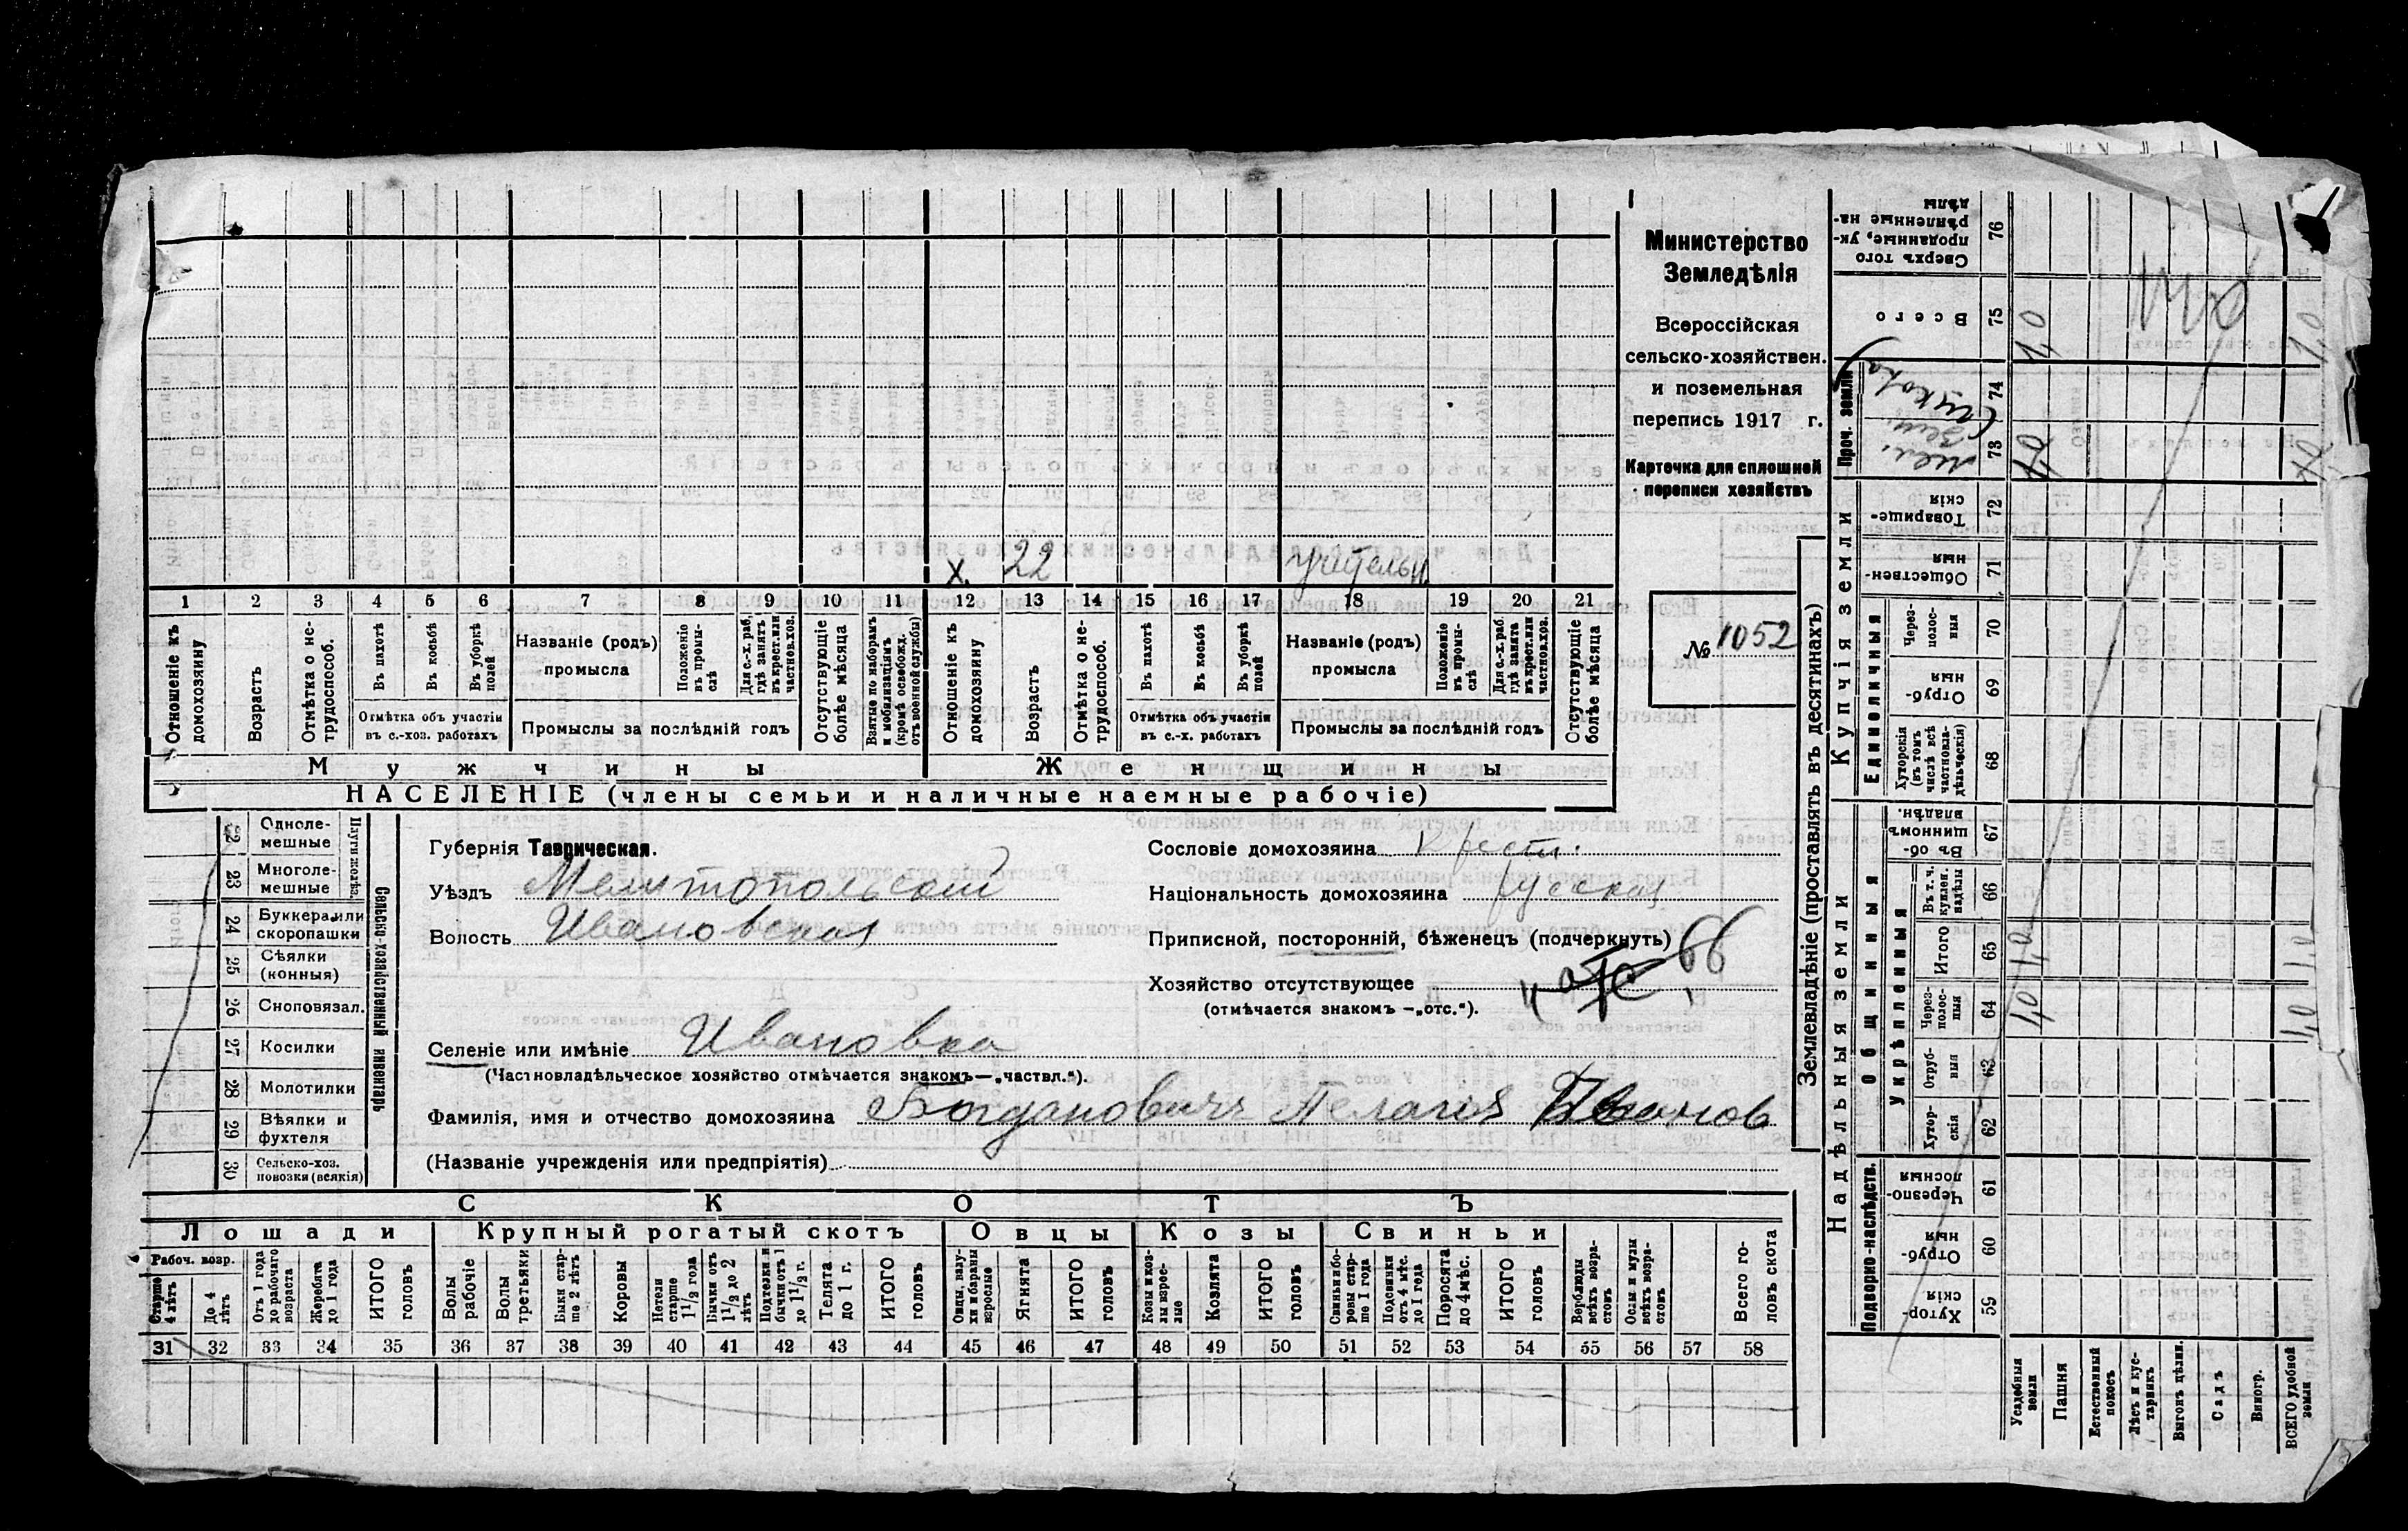 Министерство
Земледѣлія
Всероссійская
сельско-хозяйствен.
и поземельная
перепись 1917 г.
Карточка для сплошной
переписи хозяйствъ
№ 1052
х. 22 учительн.
1 2 3 4 5 6 7 8 9 10 11 12 13 14 15 16 17 18 19 20 21
Отношеніе къ домохозяину
Возрастъ
Отмѣтка о не-трудоспособ.
Въ пахотѣ
Въ косьбѣ
Въ уборкѣ полей
Отмѣтка объ участіи
въ с.-хоз. работахъ
Названіе (родъ)
промысла
Положеніе въ промы-слѣ
Для с.-х. раб, гдѣ занятъ въ крест. или частнов. хоз.
Промыслы за послѣдній годъ
Отсутствующіе болѣе мѣсяца
Взятые по наборамъ и мобилизаціямъ (кромѣ освобожд. отъ военной службы)
Отношеніе къ домохозяину
Возрастъ
Отмѣтка о не-трудоспособ.
Въ пахотѣ
Въ косьбѣ
Въ уборкѣ полей
Отмѣтка объ участіи
въ с.-х. работахъ
Названіе (родъ)
промысла
Положеніе въ промы-слѣ
Для с.-х. раб. гдѣ занята въ крест. или частнов. хоз.
Промыслы за послѣдній годъ
Отсутствующіе болѣе мѣсяца
Мужчины Женщины
НАСЕЛЕНІЕ (члены семьи и наличные наемные рабочіе)
Одноле-мешные
23 Многоле-мешные
24 Буккера или скоропашки
25 Сѣялки (конныя)
26 Сноповязал.
27 Косилки
28 Молотилки
29 Вѣялки и фухтеля
30 Сельско-хоз. повозки (всякія)
Сельско-хозяйственный инвентарь
Губернія Таврическая.
Уѣздъ Мелитопольскій
Волость Ивановская
Сословіе домохозяина крест.
Національность домохозяина русская
Приписной, посторонній, бѣженецъ (подчеркнуть)
Хозяйство отсутствующее
(отмѣчается знакомъ —„отс.").
66
Селеніе или имѣніе Ивановка
(Частновладѣльческое хозяйство отмѣчается знакомъ—„частвл.").
Фамилія, имя и отчество домохозяина Богдановичъ Пелагея Иванов
(Названіе учрежденія или предпріятія)
СКОТЪ
Лошади Крупный рогатый скотъ Овцы Козы Свиньи
Рабоч. возр.
Старше 4 лѣтъ
До 4 лѣтъ
Отъ 1 года до рабочаго возраста
Жеребята до 1 года
ИТОГО головъ
Волы рабочіе
Волы третьяки
Быки стар-ше 2 лѣтъ
Коровы
Нетели старше 1 1/2 года
Бычки отъ 1 1/2 до 2 лѣтъ
Подтелки и бычки отъ 1 до 1 1/2 г.
Телята до 1 г.
ИТОГО головъ
Овцы, валу-хи и бараны взрослые
Ягнята
ИТОГО головъ
Козы и коз-лы взрос-лые
Козлята
ИТОГО головъ
Свиньи и бо-ровы стар-ше 1 года
Подсвинки отъ 4 мѣс. до 1 года
Поросята до 4 мѣс.
ИТОГО головъ
Верблюды всѣхъ возра-стовъ
Ослы и мулы всѣхъ возра-стовъ
Всего го-ловъ скота
31 32 33 34 35 36 37 38 39 40 41 42 43 44 45 46 47 48 49 50 51 52 53 54 55 56 57 58
Землевладѣніе (проставлять въ десятинахъ)
Надѣльныя земли Купчія земли Проч. земли
Подворно-наслѣдств. Общинныя Единоличныя
Укрѣпленныя
Сверхъ того проданные, ук-рѣпленные на-дѣлы 76
Всего 75
74
73
Товарище-скія 72
Обществен-ныя 71
Через-полос-ныя 70
Отруб-ныя 69
Хуторскія (въ томъ числѣ всѣ частновла-дѣльческія) 68
Въ об-щинномъ владѣн. 67
Въ т. ч. куплен. надѣлы 66
Итого 65
Через-полос-ныя 64
Отруб-ныя 63
Хутор-скія 62
Черезпо-лосныя 61
Отруб-ныя 60
Хутор-скія 59
1,0
1,0
1,0
1,0
1,0
1,0
Усадебныя земли
Пашня
Естественный покосъ
Лѣсъ и кус-тарникъ
Выгонъ цѣлин.
Садъ
Виногр.
ВСЕГО удобной земли